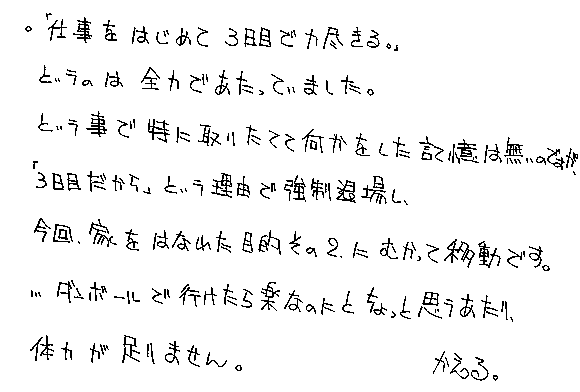 。「仕事をはじめて3日目で力尽きる。」
というのは全力であたっていました。
という事で特に取りたてて何かをした記憶は無いのですが、
「3日目だから」という理由で強制退場し、
今回、家をはなれた目的その2.にむかって移動です。
… ダンボールで行けたら楽なのにとちょっと思うあたり、
体力が足りません。 かえる。